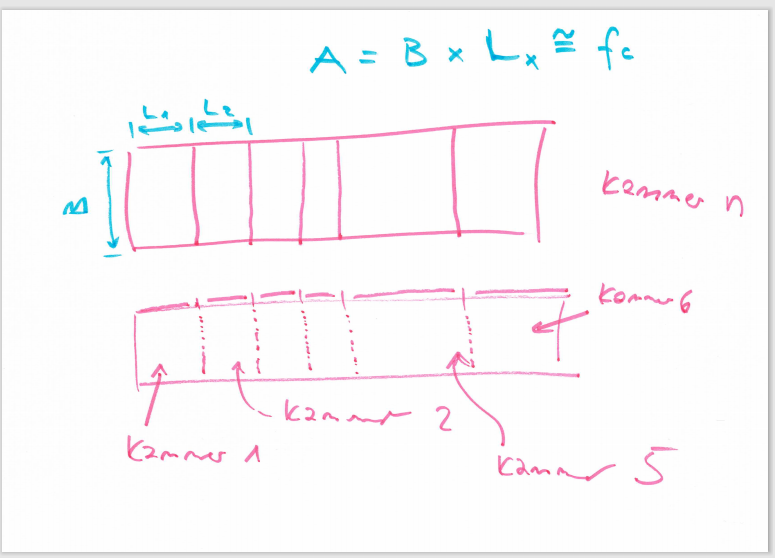 A = B × Lx ≅ fc
L1 L2
B
Kammer n
Kammer 6
Kammer 2
Kammer 1
Kammer 5